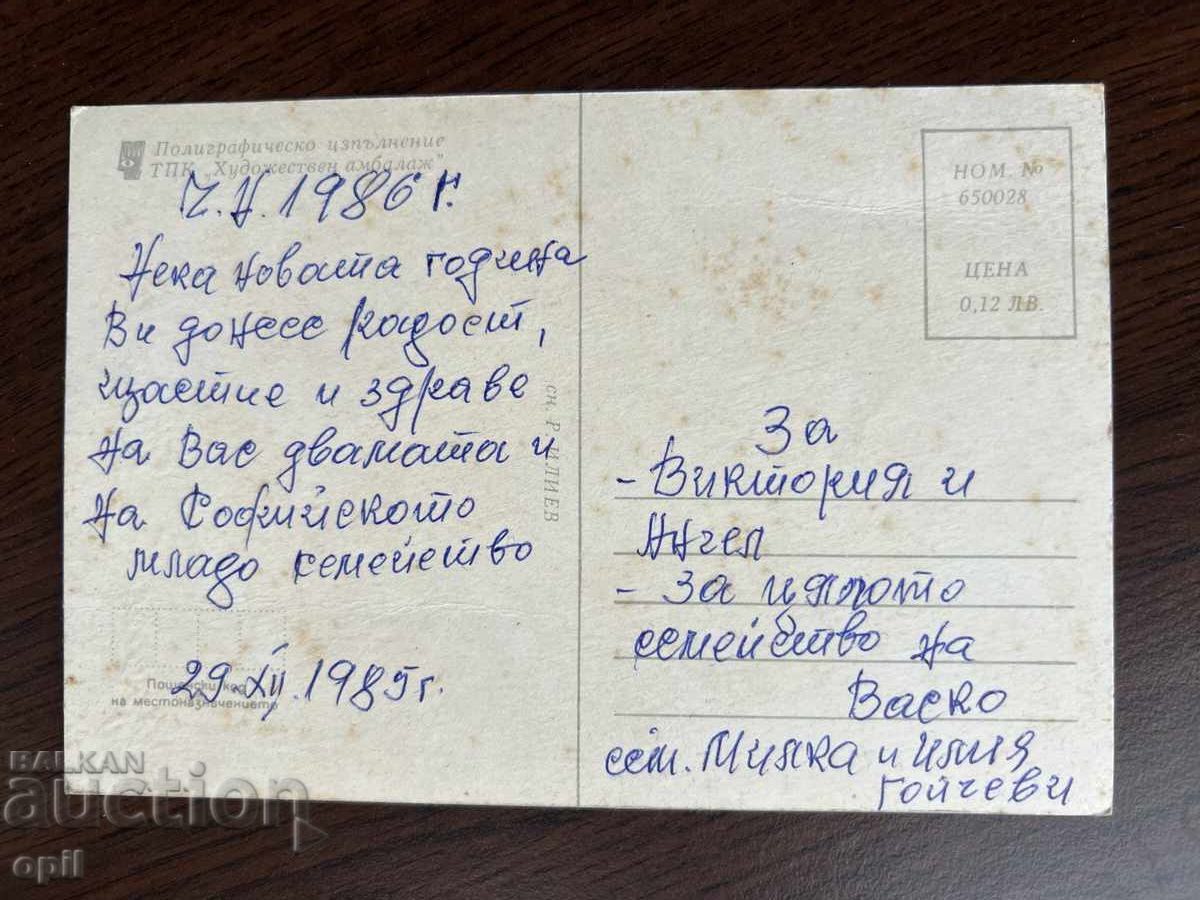 Полиграфическо изпълнение
ТПК „Художествен амбалаж"
Ч.Н. 1986 г.
Нека новата година
Ви донесе радост,
щастие и здраве
на Вас двамата и
на Софийското
младо семейство
29.XII.1985 г.
Пощенски код
на местоназначението
сн. Р. ИЛИЕВ
НОМ. №
650028
ЦЕНА
0,12 ЛВ.
За
- Виктория и
Ангел
- За цялото
семейство на
Васко
сем. Милка и Илия
Гойчеви
BALKAN
auction
opil